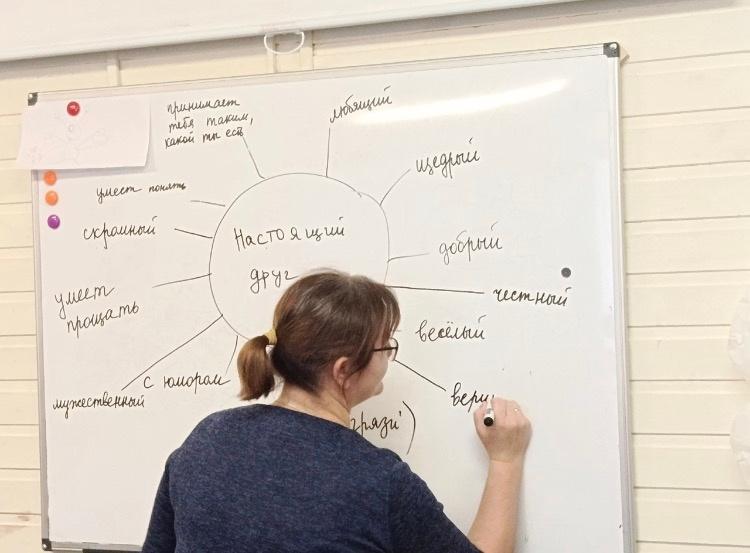 принимает
тебя таким,
какой ты есть
любящий
щедрый
умеет понять
скромный
Настоящий
друг
добрый
умеет
прощать
честный
весёлый
с юмором
мужественный
верн
грязи)